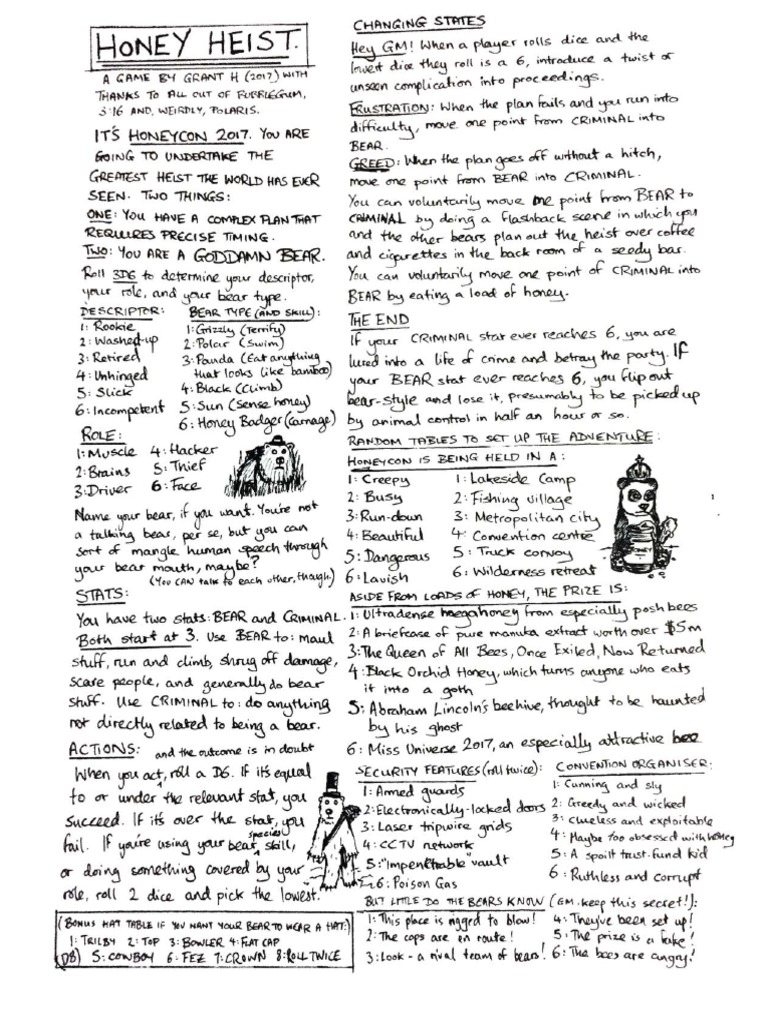 HONEY HEIST.
A GAME BY GRANT H (2017) WITH
THANKS TO ALL OUT OF BUBBLEGUM,
3:16 AND, WEIRDLY, POLARIS.
IT'S HONEYCON 2017. YOU ARE
GOING TO UNDERTAKE THE
GREATEST HEIST THE WORLD HAS EVER
SEEN. TWO THINGS:
ONE: YOU HAVE A COMPLEX PLAN THAT
REQUIRES PRECISE TIMING.
TWO: YOU ARE A GODDAMN BEAR.
Roll 3D6 to determine your descriptor,
your role, and your bear type.
DESCRIPTOR:
1: Rookie
2: Washed-up
3: Retired
4: Unhinged
5: Slick
6: Incompetent
BEAR TYPE (AND SKILL):
1: Grizzly (Terrify)
2: Polar (Swim)
3: Panda (Eat anything
that looks like bamboo)
4: Black (Climb)
5: Sun (Sense honey)
6: Honey Badger (carnage)
ROLE:
1: Muscle 4: Hacker
2: Brains 5: Thief
3: Driver 6: Face
Name your bear, if you want. You're not
a talking bear, per se, but you can
sort of mangle human speech through
your bear mouth, maybe?
(You CAN talk to each other, though.)
STATS:
You have two stats: BEAR and CRIMINAL.
Both start at 3. Use BEAR to: maul
stuff, run and climb, shrug off damage,
scare people, and generally do bear
stuff. Use CRIMINAL to: do anything
not directly related to being a bear.
ACTIONS:
When you act, and the outcome is in doubt roll a D6. If it's equal
to or under the relevant stat, you
succeed. If it's over the stat, you
fail. If you're using your bear special skill,
or doing something covered by your
role, roll 2 dice and pick the lowest.
(BONUS HAT TABLE IF YOU WANT YOUR BEAR TO WEAR A HAT:)
1: TRILBY 2: TOP 3: BOWLER 4: FLAT CAP
(D8) 5: COWBOY 6: FEZ 7: CROWN 8: ROLL TWICE
CHANGING STATES
Hey GM! When a player rolls dice and the
lowest dice they roll is a 6, introduce a twist or
unseen complication into proceedings.
FRUSTRATION: When the plan fails and you run into
difficulty, move one point from CRIMINAL into
BEAR.
GREED: When the plan goes off without a hitch,
move one point from BEAR into CRIMINAL.
You can voluntarily move one point from BEAR to
CRIMINAL by doing a flashback scene in which you
and the other bears plan out the heist over coffee
and cigarettes in the back room of a seedy bar.
You can voluntarily move one point of CRIMINAL into
BEAR by eating a load of honey.
THE END
If your CRIMINAL stat ever reaches 6, you are
lured into a life of crime and betray the party. If
your BEAR stat ever reaches 6, you flip out
bear-style and lose it, presumably to be picked up
by animal control in half an hour or so.
RANDOM TABLES TO SET UP THE ADVENTURE:
HONEYCON IS BEING HELD IN A:
1: Creepy
2: Busy
3: Run-down
4: Beautiful
5: Dangerous
6: Lavish
1: Lakeside Camp
2: Fishing village
3: Metropolitan city
4: Convention centre
5: Truck convoy
6: Wilderness retreat
HONEY
ASIDE FROM LOADS OF HONEY, THE PRIZE IS:
1: Ultradense megahoney from especially posh bees
2: A briefcase of pure manuka extract worth over $5m
3: The Queen of All Bees, Once Exiled, Now Returned
4: Black Orchid Honey, which turns anyone who eats
it into a goth
5: Abraham Lincoln's beehive, thought to be haunted
by his ghost
6: Miss Universe 2017, an especially attractive bee
SECURITY FEATURES (roll twice):
1: Armed guards
2: Electronically-locked doors
3: Laser tripwire grids
4: CCTV network
5: "Impenetrable" vault
6: Poison Gas
CONVENTION ORGANISER:
1: Cunning and sly
2: Greedy and wicked
3: Clueless and exploitable
4: Maybe too obsessed with honey
5: A spoilt trust-fund kid
6: Ruthless and corrupt
BUT LITTLE DO THE BEARS KNOW (GM: keep this secret!):
1: This place is rigged to blow!
2: The cops are en route!
3: Look - a rival team of bears!
4: They've been set up!
5: The prize is a fake!
6: The bees are angry!